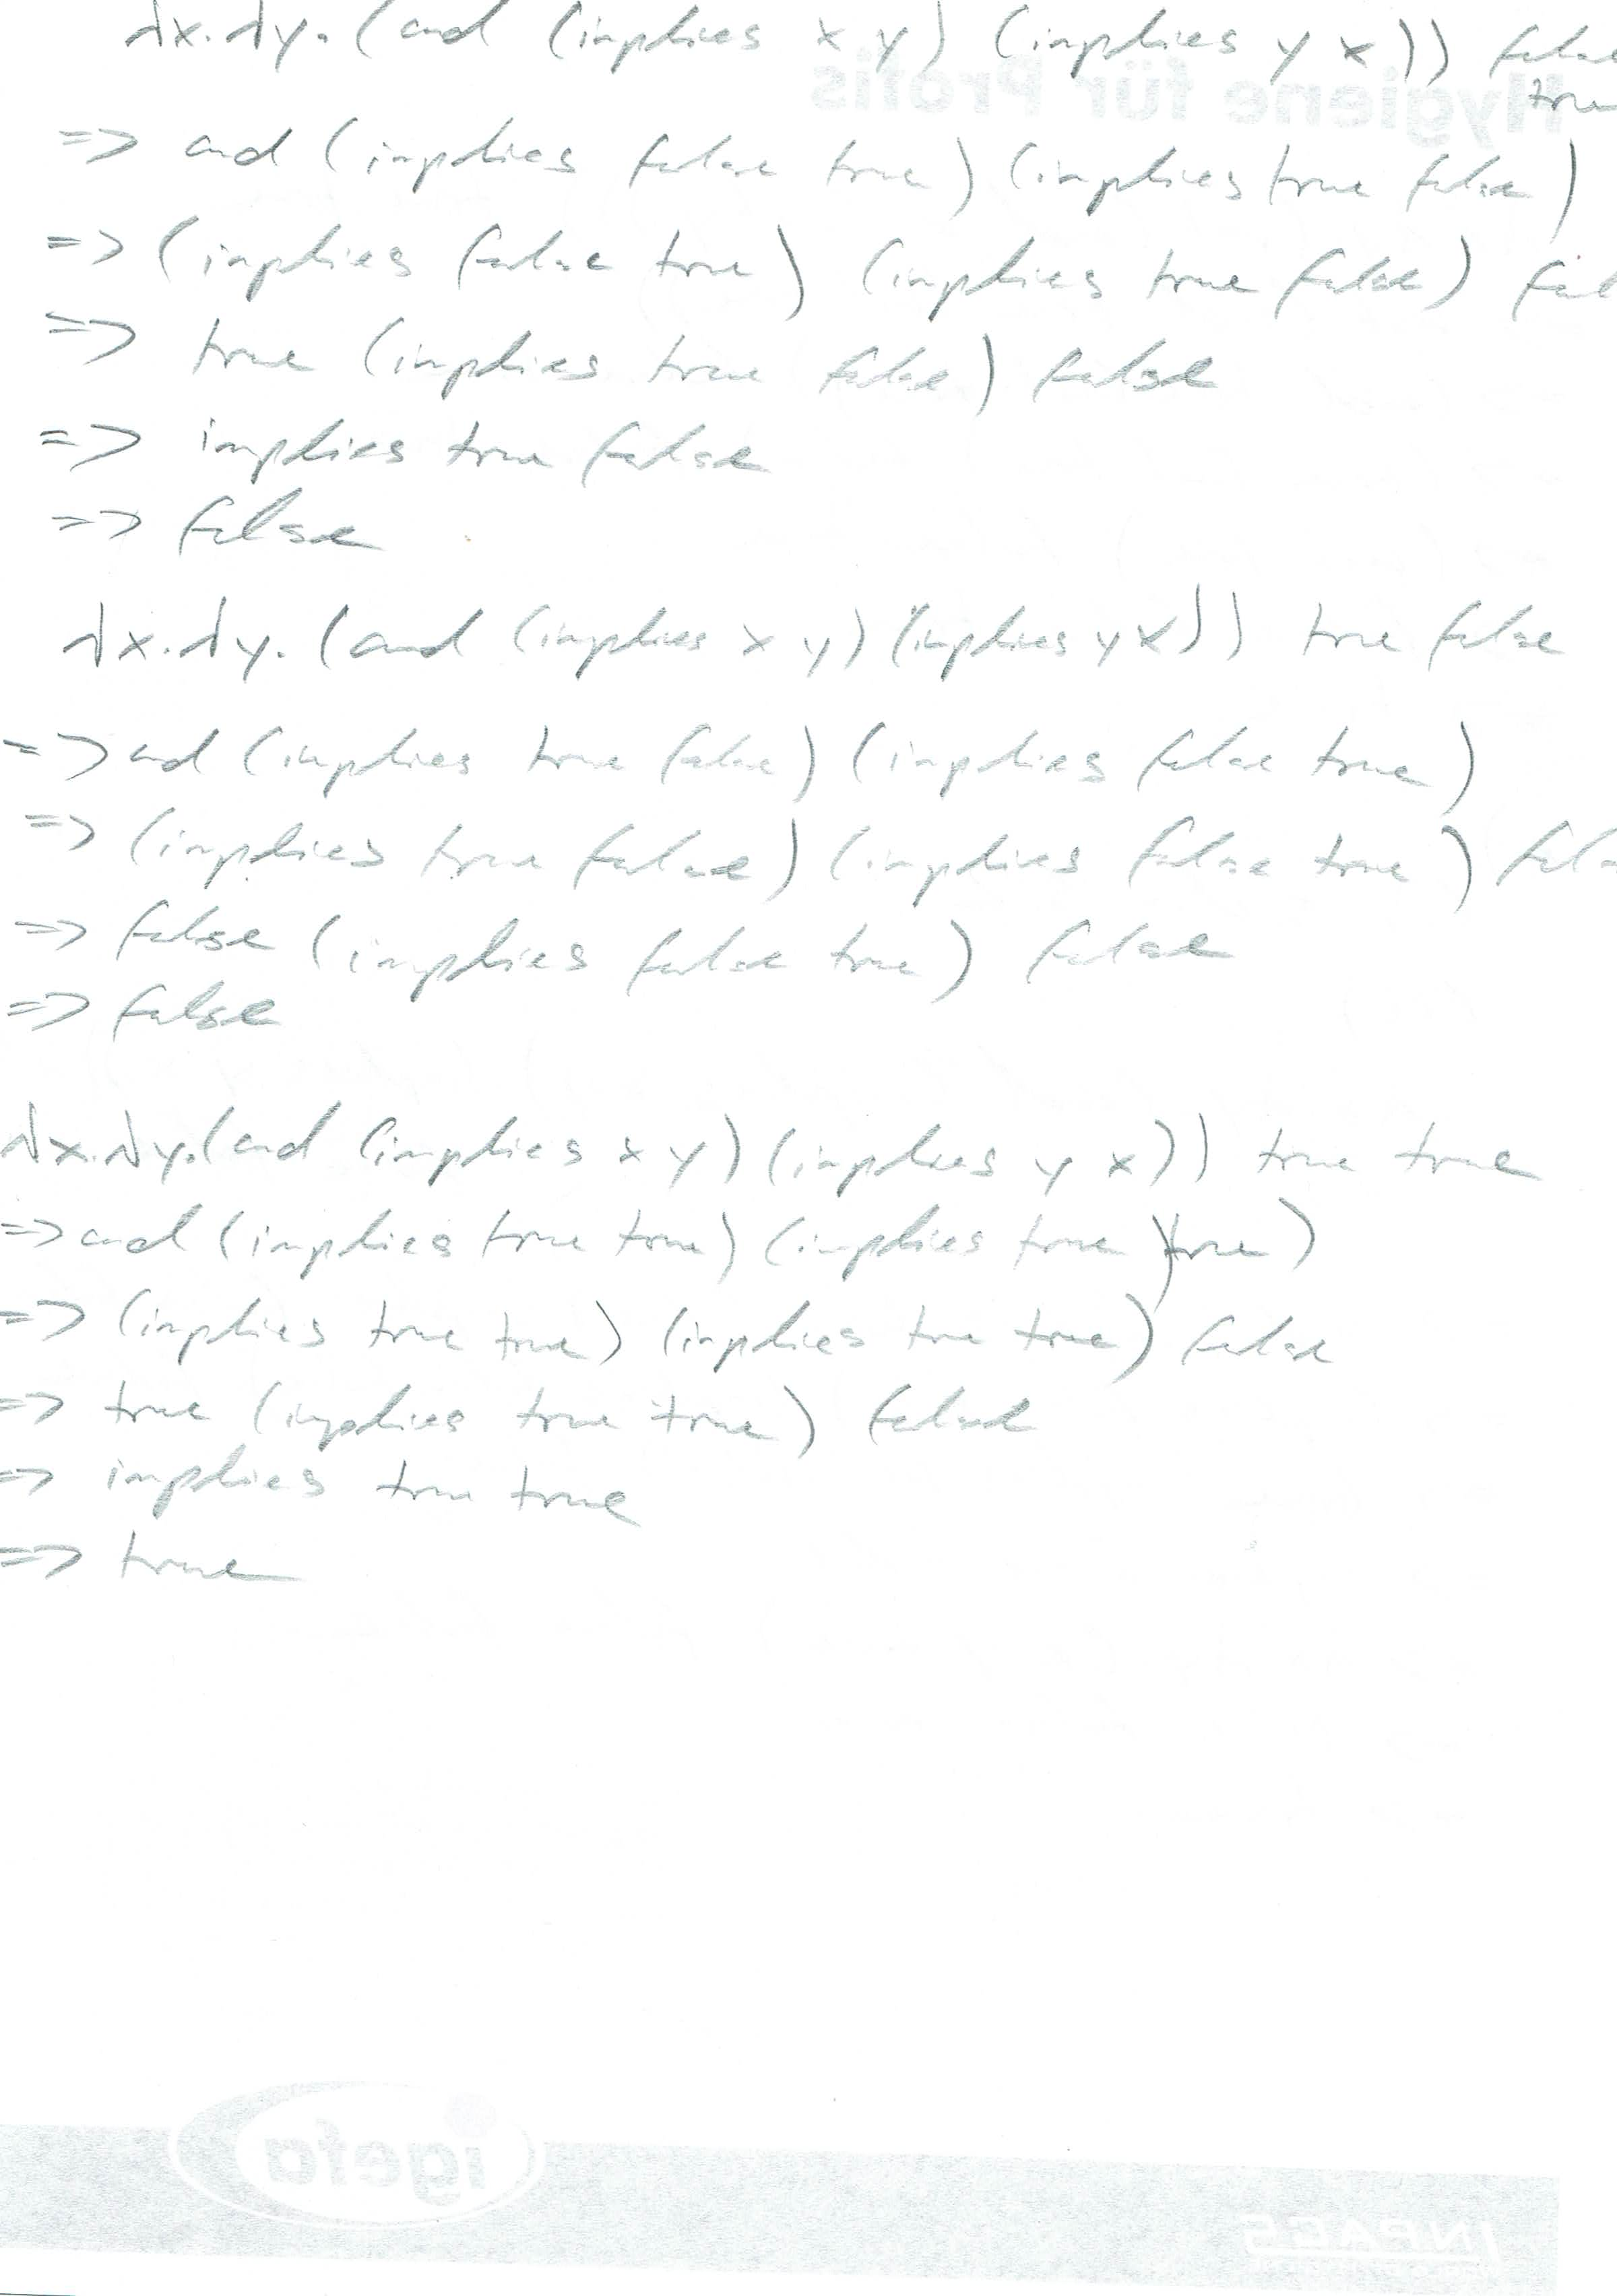 λx.λy.(and (implies x y) (implies y x)) false
true
Hygiene für Profis
=> and (implies false true) (implies true false)
=> (implies false true) (implies true false) fal
=> true (implies true false) false
=> implies true false
=> false
λx.λy.(and (implies x y) (implies y x)) true false
=> and (implies true false) (implies false true)
=> (implies true false) (implies false true) fals
=> false (implies false true) false
=> false
λx.λy.(and (implies x y) (implies y x)) true true
=> and (implies true true) (implies true true)
=> (implies true true) (implies true true) false
=> true (implies true true) false
=> implies true true
=> true
igefa